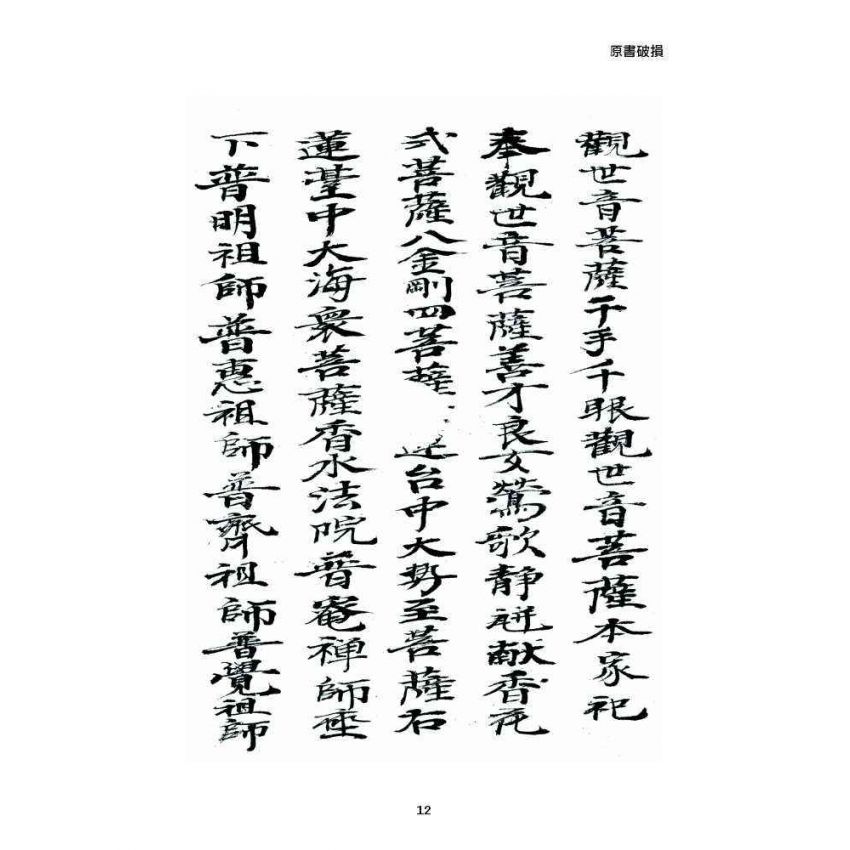 原書破損
觀世音菩薩千手千眼觀世音菩薩本家祀
奉觀世音菩薩善才良女鶯歌静瓶献香花
弍菩薩八金剛四菩薩 台中大勢至菩薩右
蓮臺中大海衆菩薩香水法院普庵禅師座
下普明祖師普惠祖師普齊祖師普覺祖師
12